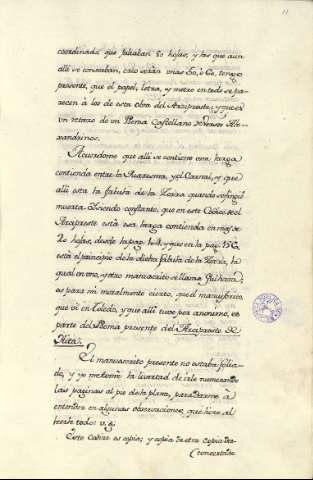 11
coordinada que faltaban 80 hojas, y las que aun
allí se contaban, creo serán unas 50, ò 60, tengo
presente, que el papel, letra, y metro en todo se pa-
recen à los de esta obra del Arzipreste; y que es
un retazo de un Poema Castellano Versos Ale-
xandrinos.
Acuerdome que allí se contiene una larga
contienda entre la Quaresma, y el Carnal, y que
allí esta la fabula de la Zorra quando se fingió
muerta. Siendo constante, que en este Codice de el
Arzipreste está esa larga contienda en mas de
20 hojas, desde la pag. y que en la pag. 150
está el principio de la dicha fabula de la Zorra, la
qual en uno, y otro manuscrito se llama Gulhara;
es para mi moralmente cierto, que el manuscrito,
que vi en Toledo, y que allí tuve por anonimo, es
parte del Poema presente del Arzipreste de
Hita.
El manuscrito presente no estaba folia-
do, y yo me tomè la libertad de irle numerando
las paginas al pie de la plana, para darme à
entender en algunas observaciones, que hice al
leerle todo: v. g.
Este Codice es copia; y copia de otra copia de-